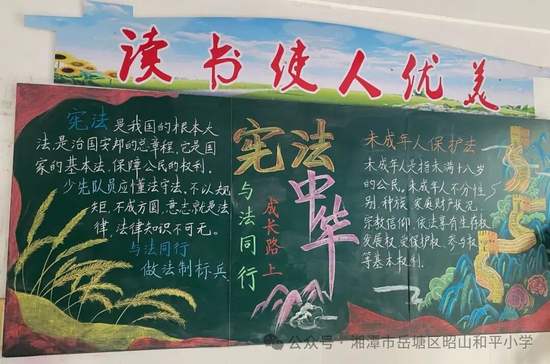 读书使人优美
宪法是我国的根本大
法,是治国安邦的总章程,它是国
家的基本法,保障公民的权利。
少先队员应懂法守法,不以规
矩,不成方圆,意志就是法
律,法律知识不可无。
与法同行
做法制标兵
宪法
中华
与法同行
成长路上
未成年人保护法
未成年人是指未满十八岁
的公民,未成年人不分性
别,种族,家庭财产状况,
宗教信仰,依法享有生存权
发展权,受保护权,参与权
等基本权利。
公众号·湘潭市岳塘区昭山和平小学